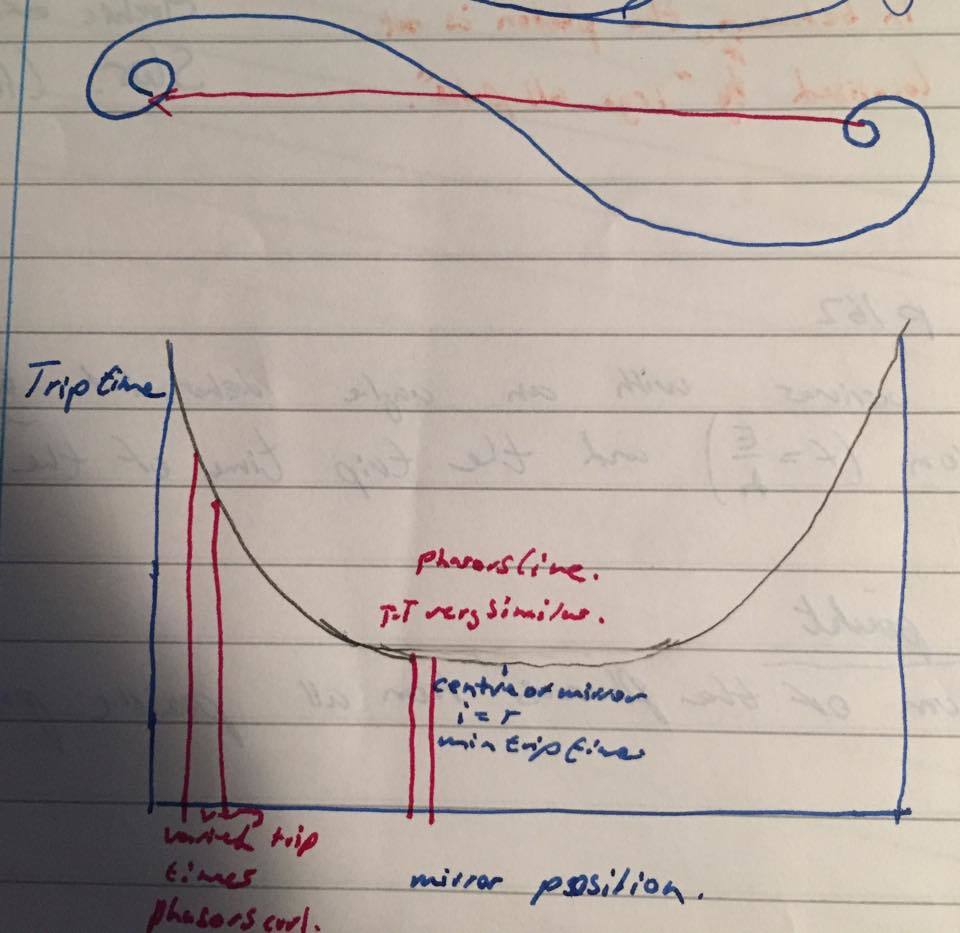 Trip time
phasors line.
T.T very similar.
centre of mirror
i = r
min trip time
varied trip
times
phasors curl.
mirror position.